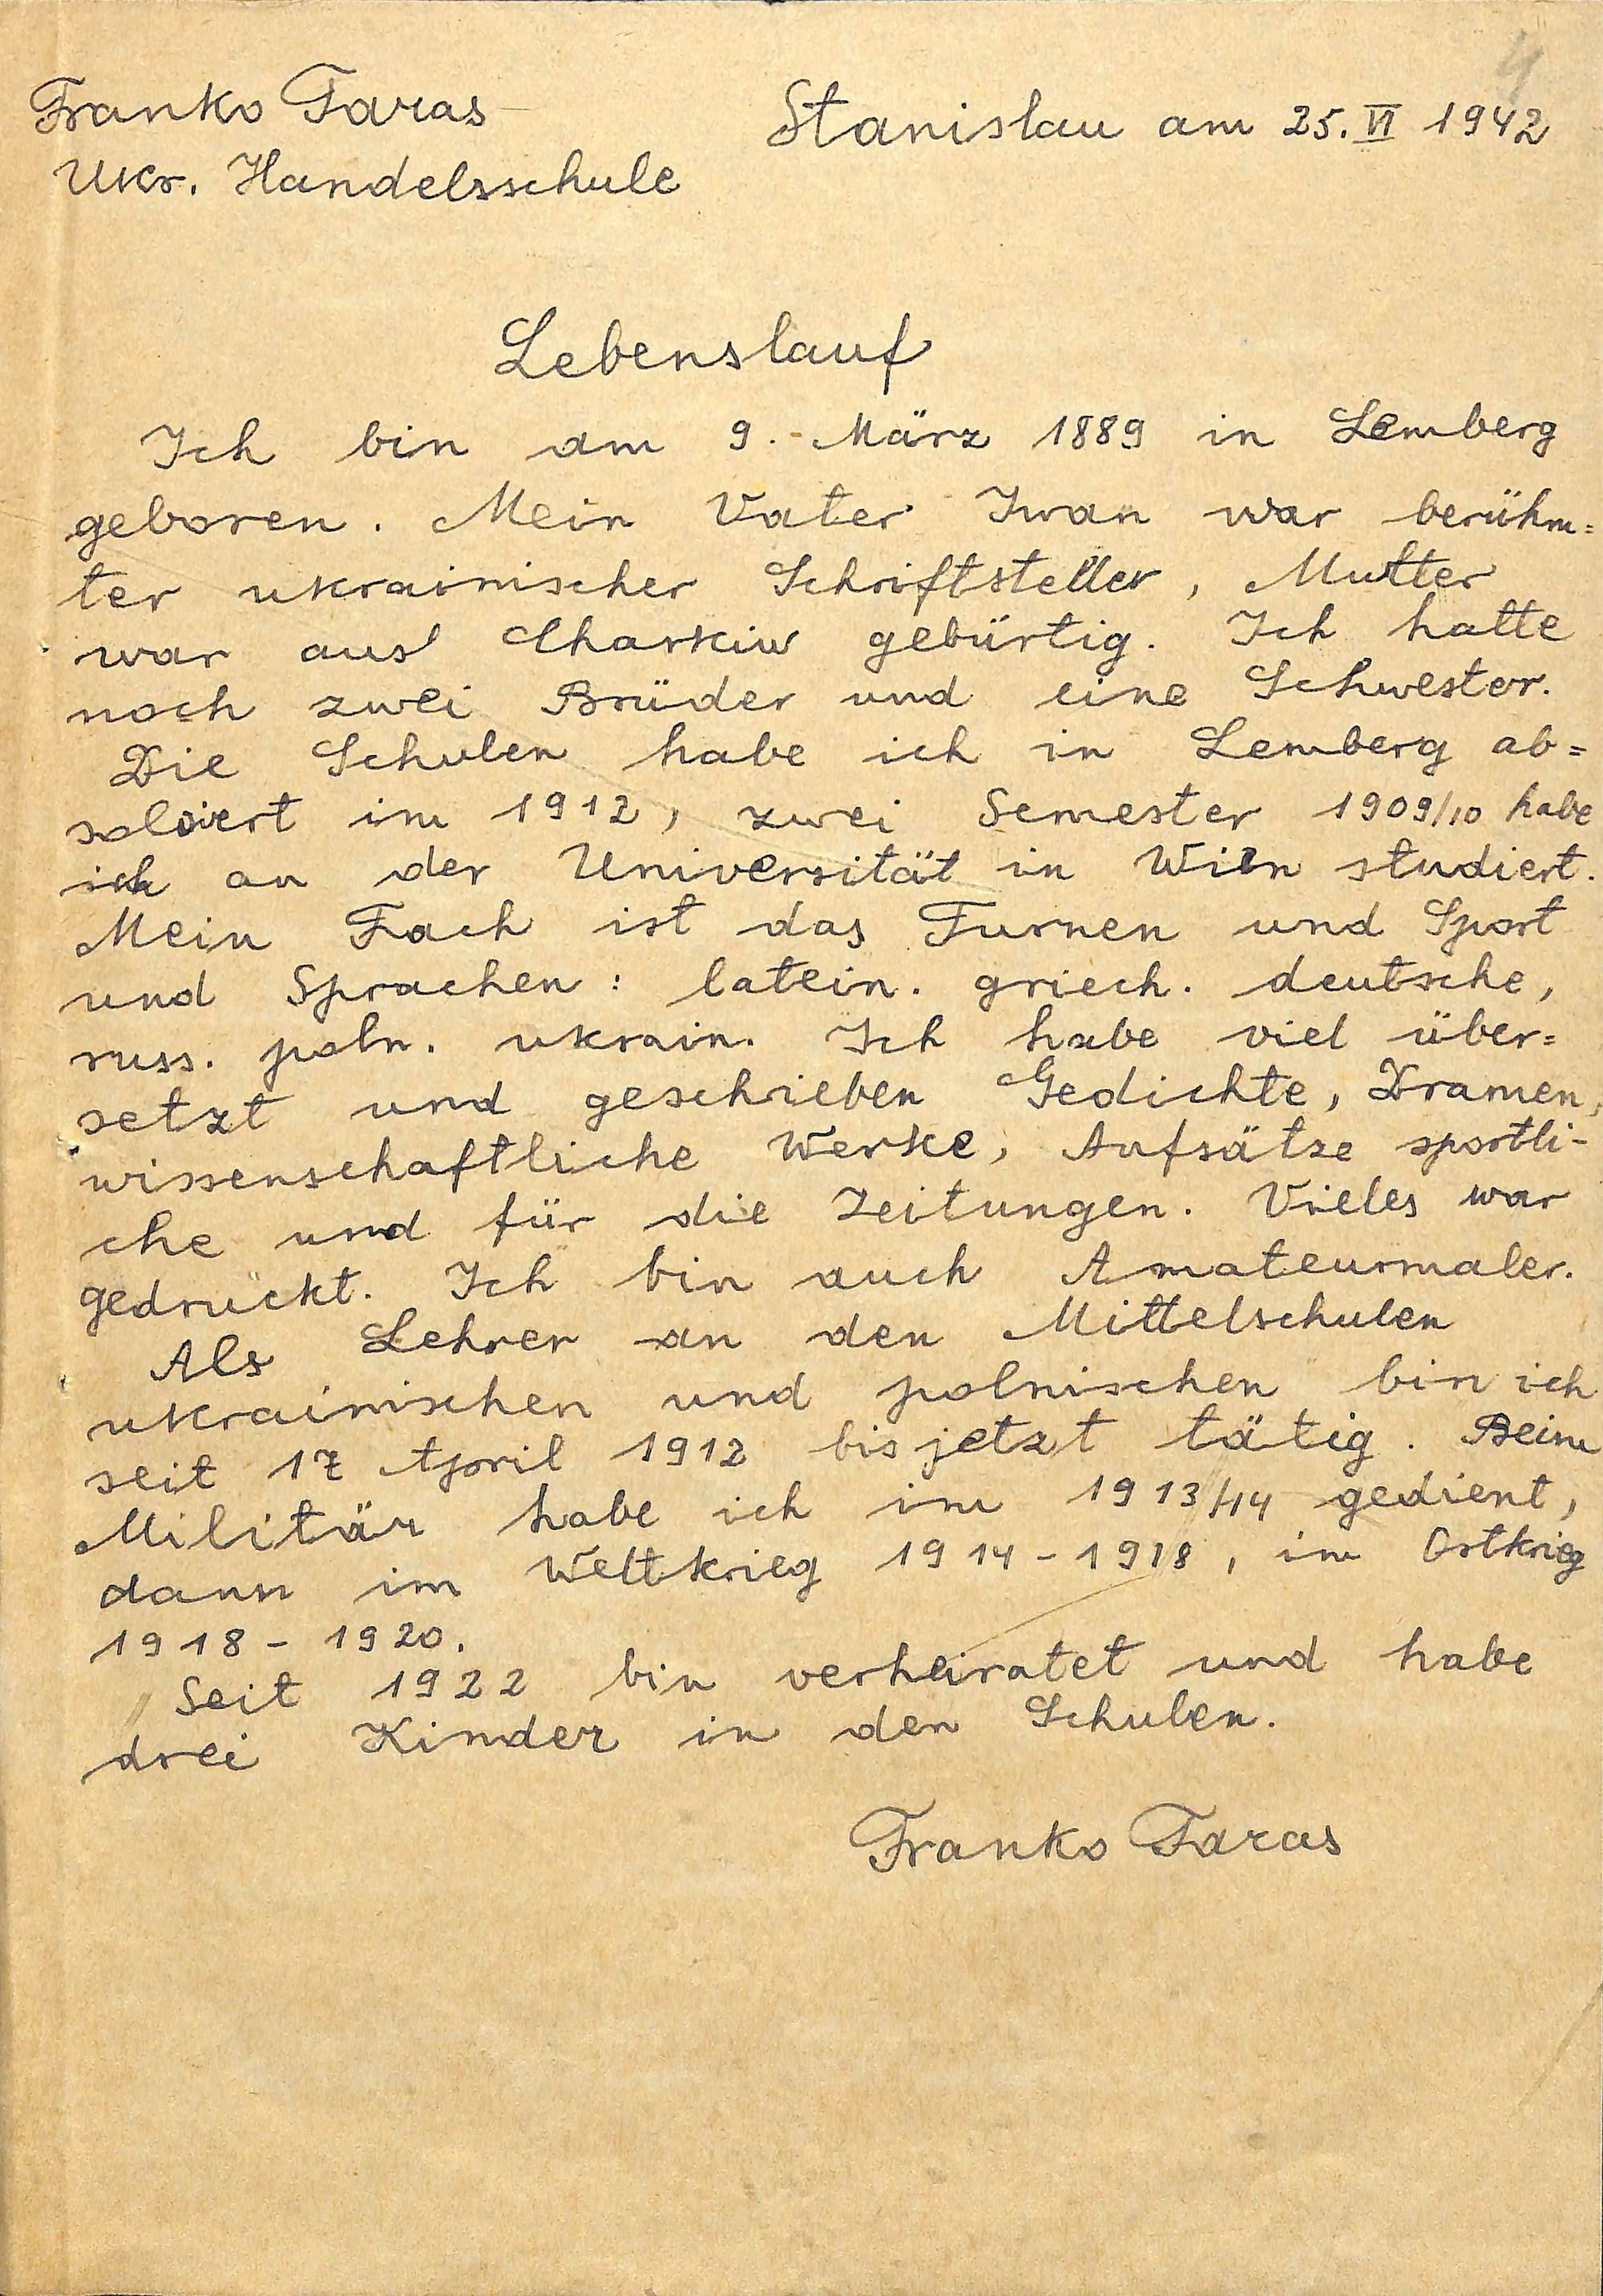 4
Franko Taras
Stanislau am 25. VI 1942
Ukr. Handelsschule
Lebenslauf
Ich bin am 9. März 1889 in Lemberg
geboren. Mein Vater Iwan war berühm=
ter ukrainischer Schriftsteller, Mutter
war aus Charkiw gebürtig. Ich hatte
noch zwei Brüder und eine Schwester.
Die Schulen habe ich in Lemberg ab=
solviert im 1912, zwei Semester 1909/10 habe
ich an der Universität in Wien studiert.
Mein Fach ist das Turnen und Sport
und Sprachen: latein. griech. deutsche,
russ. poln. ukrain. Ich habe viel über=
setzt und geschrieben Gedichte, Dramen,
wissenschaftliche Werke, Aufsätze sportli-
che und für die Zeitungen. Vieles war
gedruckt. Ich bin auch Amateurmaler.
Als Lehrer an den Mittelschulen
ukrainischen und polnischen bin ich
seit 17 April 1912 bis jetzt tätig. Beim
Militär habe ich im 1913/14 gedient,
dann im Weltkrieg 1914-1918, im Ostkrieg
1918-1920.
Seit 1922 bin verheiratet und habe
drei Kinder in den Schulen.
Franko Taras